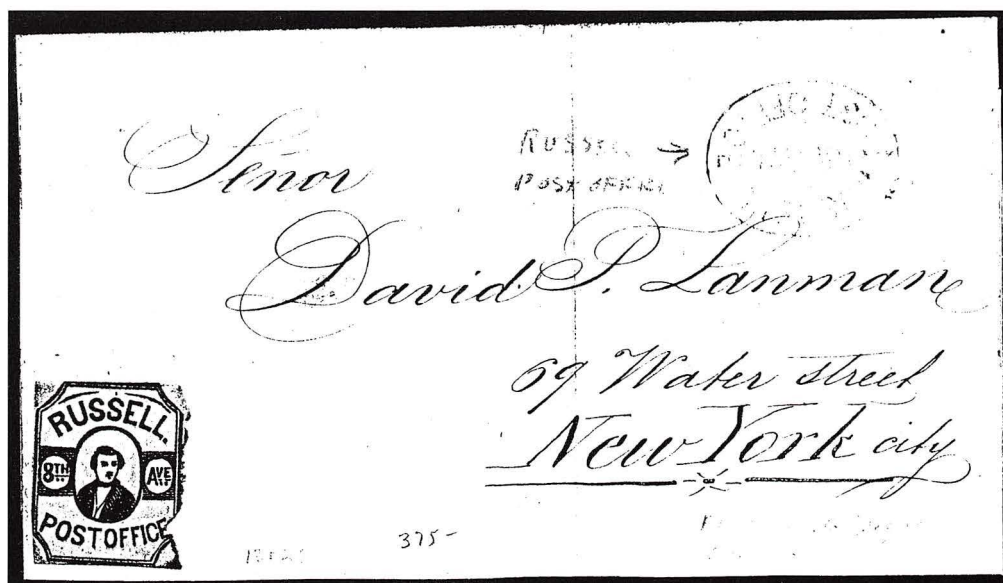 Senor
RUSSELL →
POST OFFICE
David P. Lanman
69 Water street
New York city
RUSSELL
8TH AVE
POST OFFICE
375-